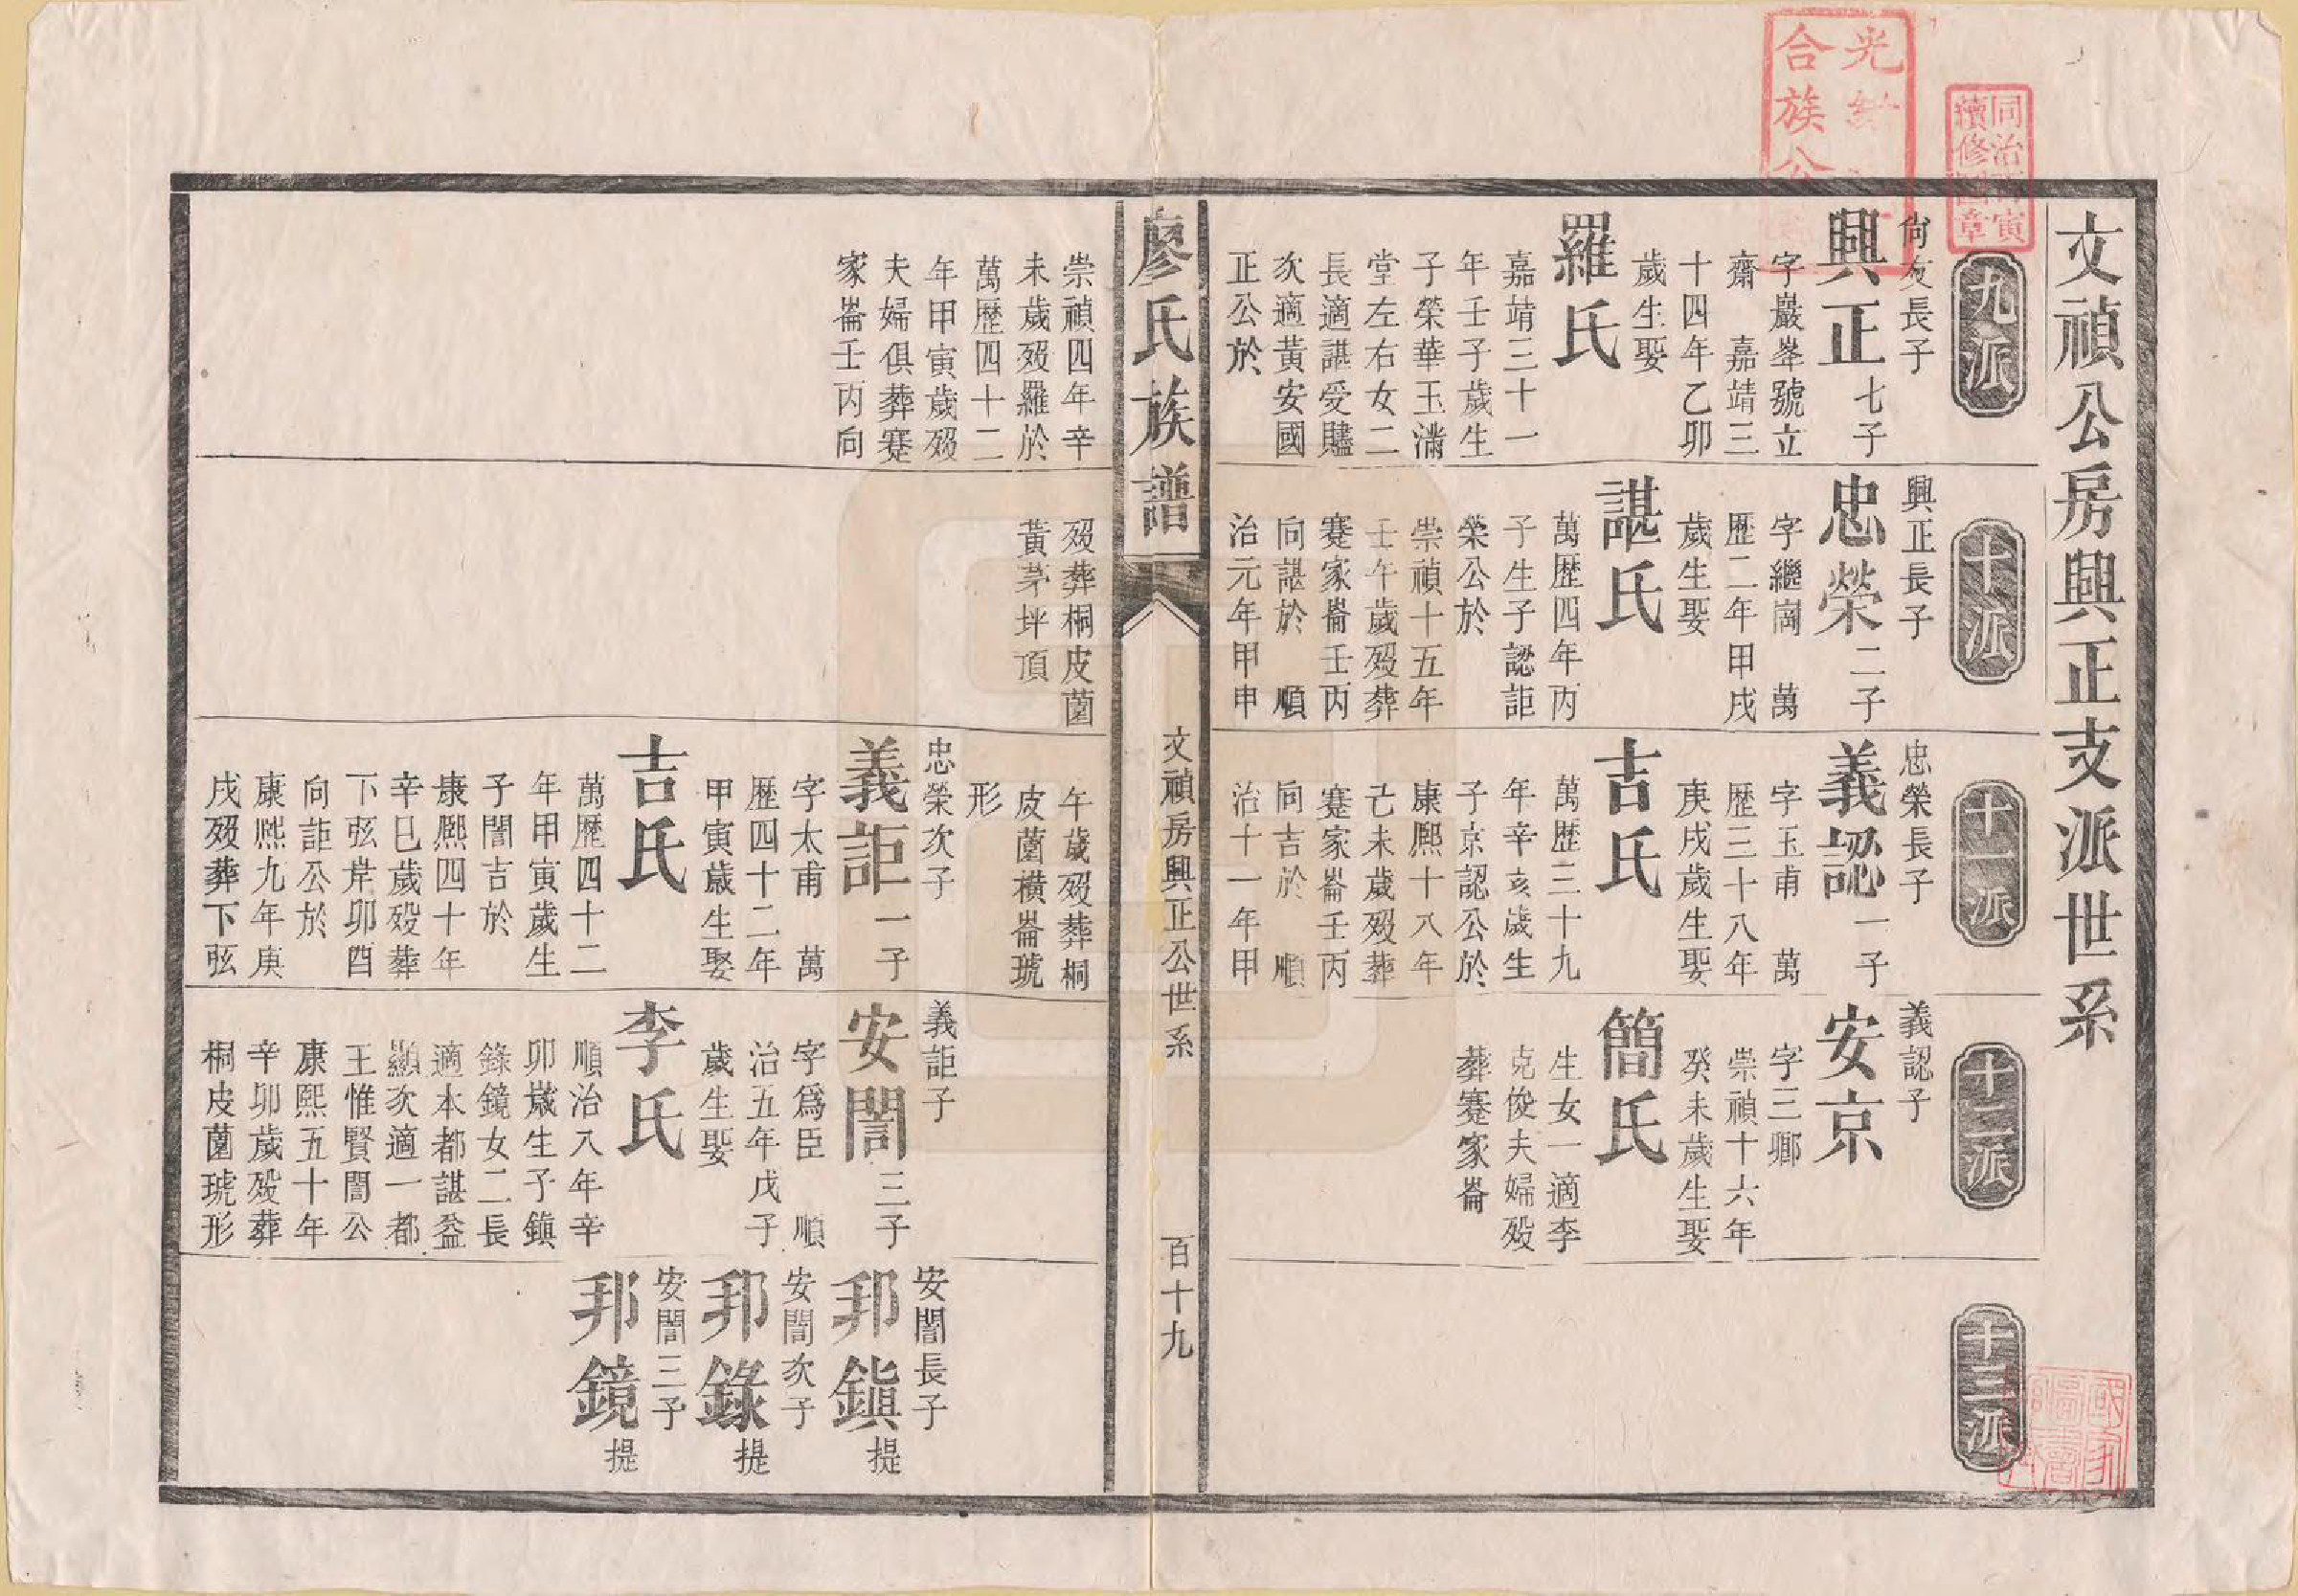 文禎公房興正支派世系
九派
尙友長子
興正
七子
字巖峯號立
齋 嘉靖三
十四年乙卯
歲生娶
羅氏
嘉靖三十一
年壬子歲生
子榮華玉滿
堂左右女二
長適諶受贐
次適黃安國
正公於
崇禎四年辛
未歲歿羅於
萬歴四十二
年甲寅歲歿
夫婦俱葬蹇
家崙壬丙向
十派
興正長子
忠榮
二子
字繼崗 萬
歴二年甲戌
歲生娶
諶氏
萬歴四年丙
子生子認詎
榮公於
崇禎十五年
壬午歲歿葬
蹇家崙壬丙
向諶於 順
治元年甲申
歿葬桐皮薗
黃茅坪頂
十一派
忠榮長子
義認
一子
字玉甫 萬
歴三十八年
庚戌歲生娶
吉氏
萬歴三十九
年辛亥歲生
子京認公於
康熙十八年
己未歲歿葬
蹇家崙壬丙
向吉於 順
治十一年甲
午歲歿葬桐
皮薗橫崙琥
形
忠榮次子
義詎
一子
字太甫 萬
歴四十二年
甲寅歲生娶
吉氏
萬歴四十二
年甲寅歲生
子誾吉於
康熙四十年
辛巳歲歿葬
下弦岸卯酉
向詎公於
康熙九年庚
戌歿葬下弦
十二派
義認子
安京
字三鄉
崇禎十六年
癸未歲生娶
簡氏
生女一適李
克俊夫婦歿
葬蹇家崙
義詎子
安誾
三子
字爲臣 順
治五年戊子
歲生娶
李氏
順治八年辛
卯歲生子鎭
錄鏡女二長
適本都諶益
顯次適一都
王惟賢誾公
康熙五十年
辛卯歲歿葬
桐皮薗琥形
十三派
安誾長子
邦鎭
提
安誾次子
邦錄
提
安誾三子
邦鏡
提
廖氏族譜
文禎房興正公世系
百十九
同治丙寅
續修圖章
光緒
合族公